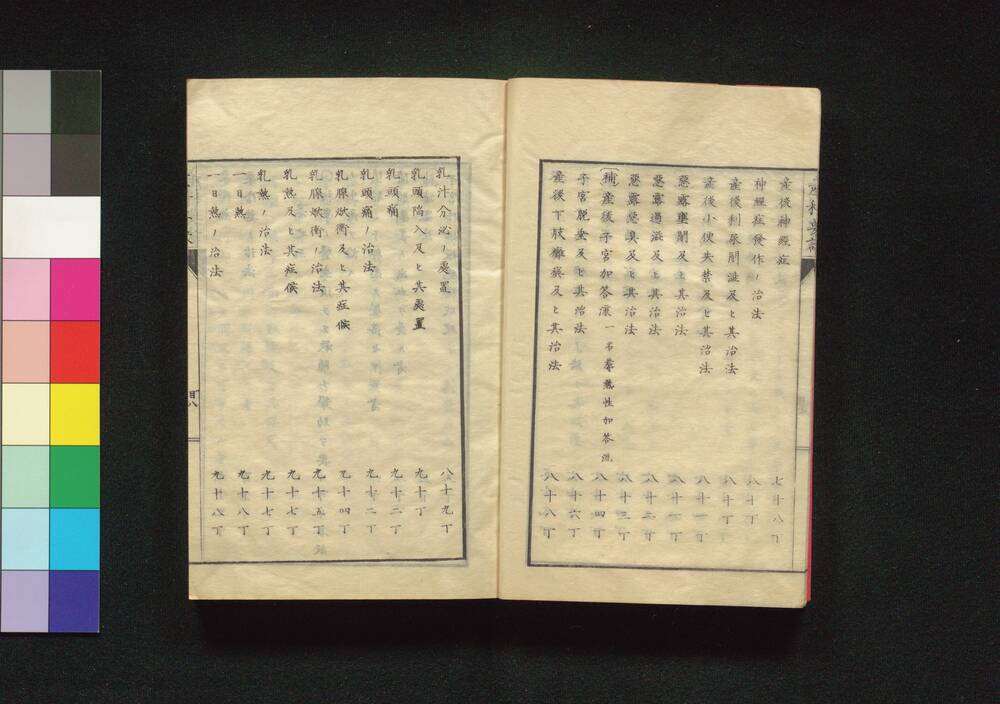 産後神經症 七十八丁
神經症發作ノ治法 八十丁
産後利尿閉澁及ヒ其治法 八十丁
産後小便失禁及ヒ其治法 八十一丁
惡露壅閉及ヒ其治法 八十一丁
惡露過溢及ヒ其治法 八十二丁
惡露惡臭及ヒ其治法 八十三丁
補産後子宮加答兒 一名摹熱性加答流 八十四丁
子宮脱垂及ヒ其治法 八十六丁
産後下肢癱瘓及ヒ其治法 八十八丁
乳汁分泌ノ處置 八十九丁
乳頭陷入及ヒ其處置 九十丁
乳頭痛 九十二丁
乳頭痛ノ治法 九十二丁
乳腺焮衝及ヒ其症候 九十四丁
乳腺焮衝ノ治法 九十五丁
乳熱及ヒ其症候 九十七丁
乳熱ノ治法 九十七丁
一日熱 九十八丁
一日熱ノ治法 九十八丁
目八